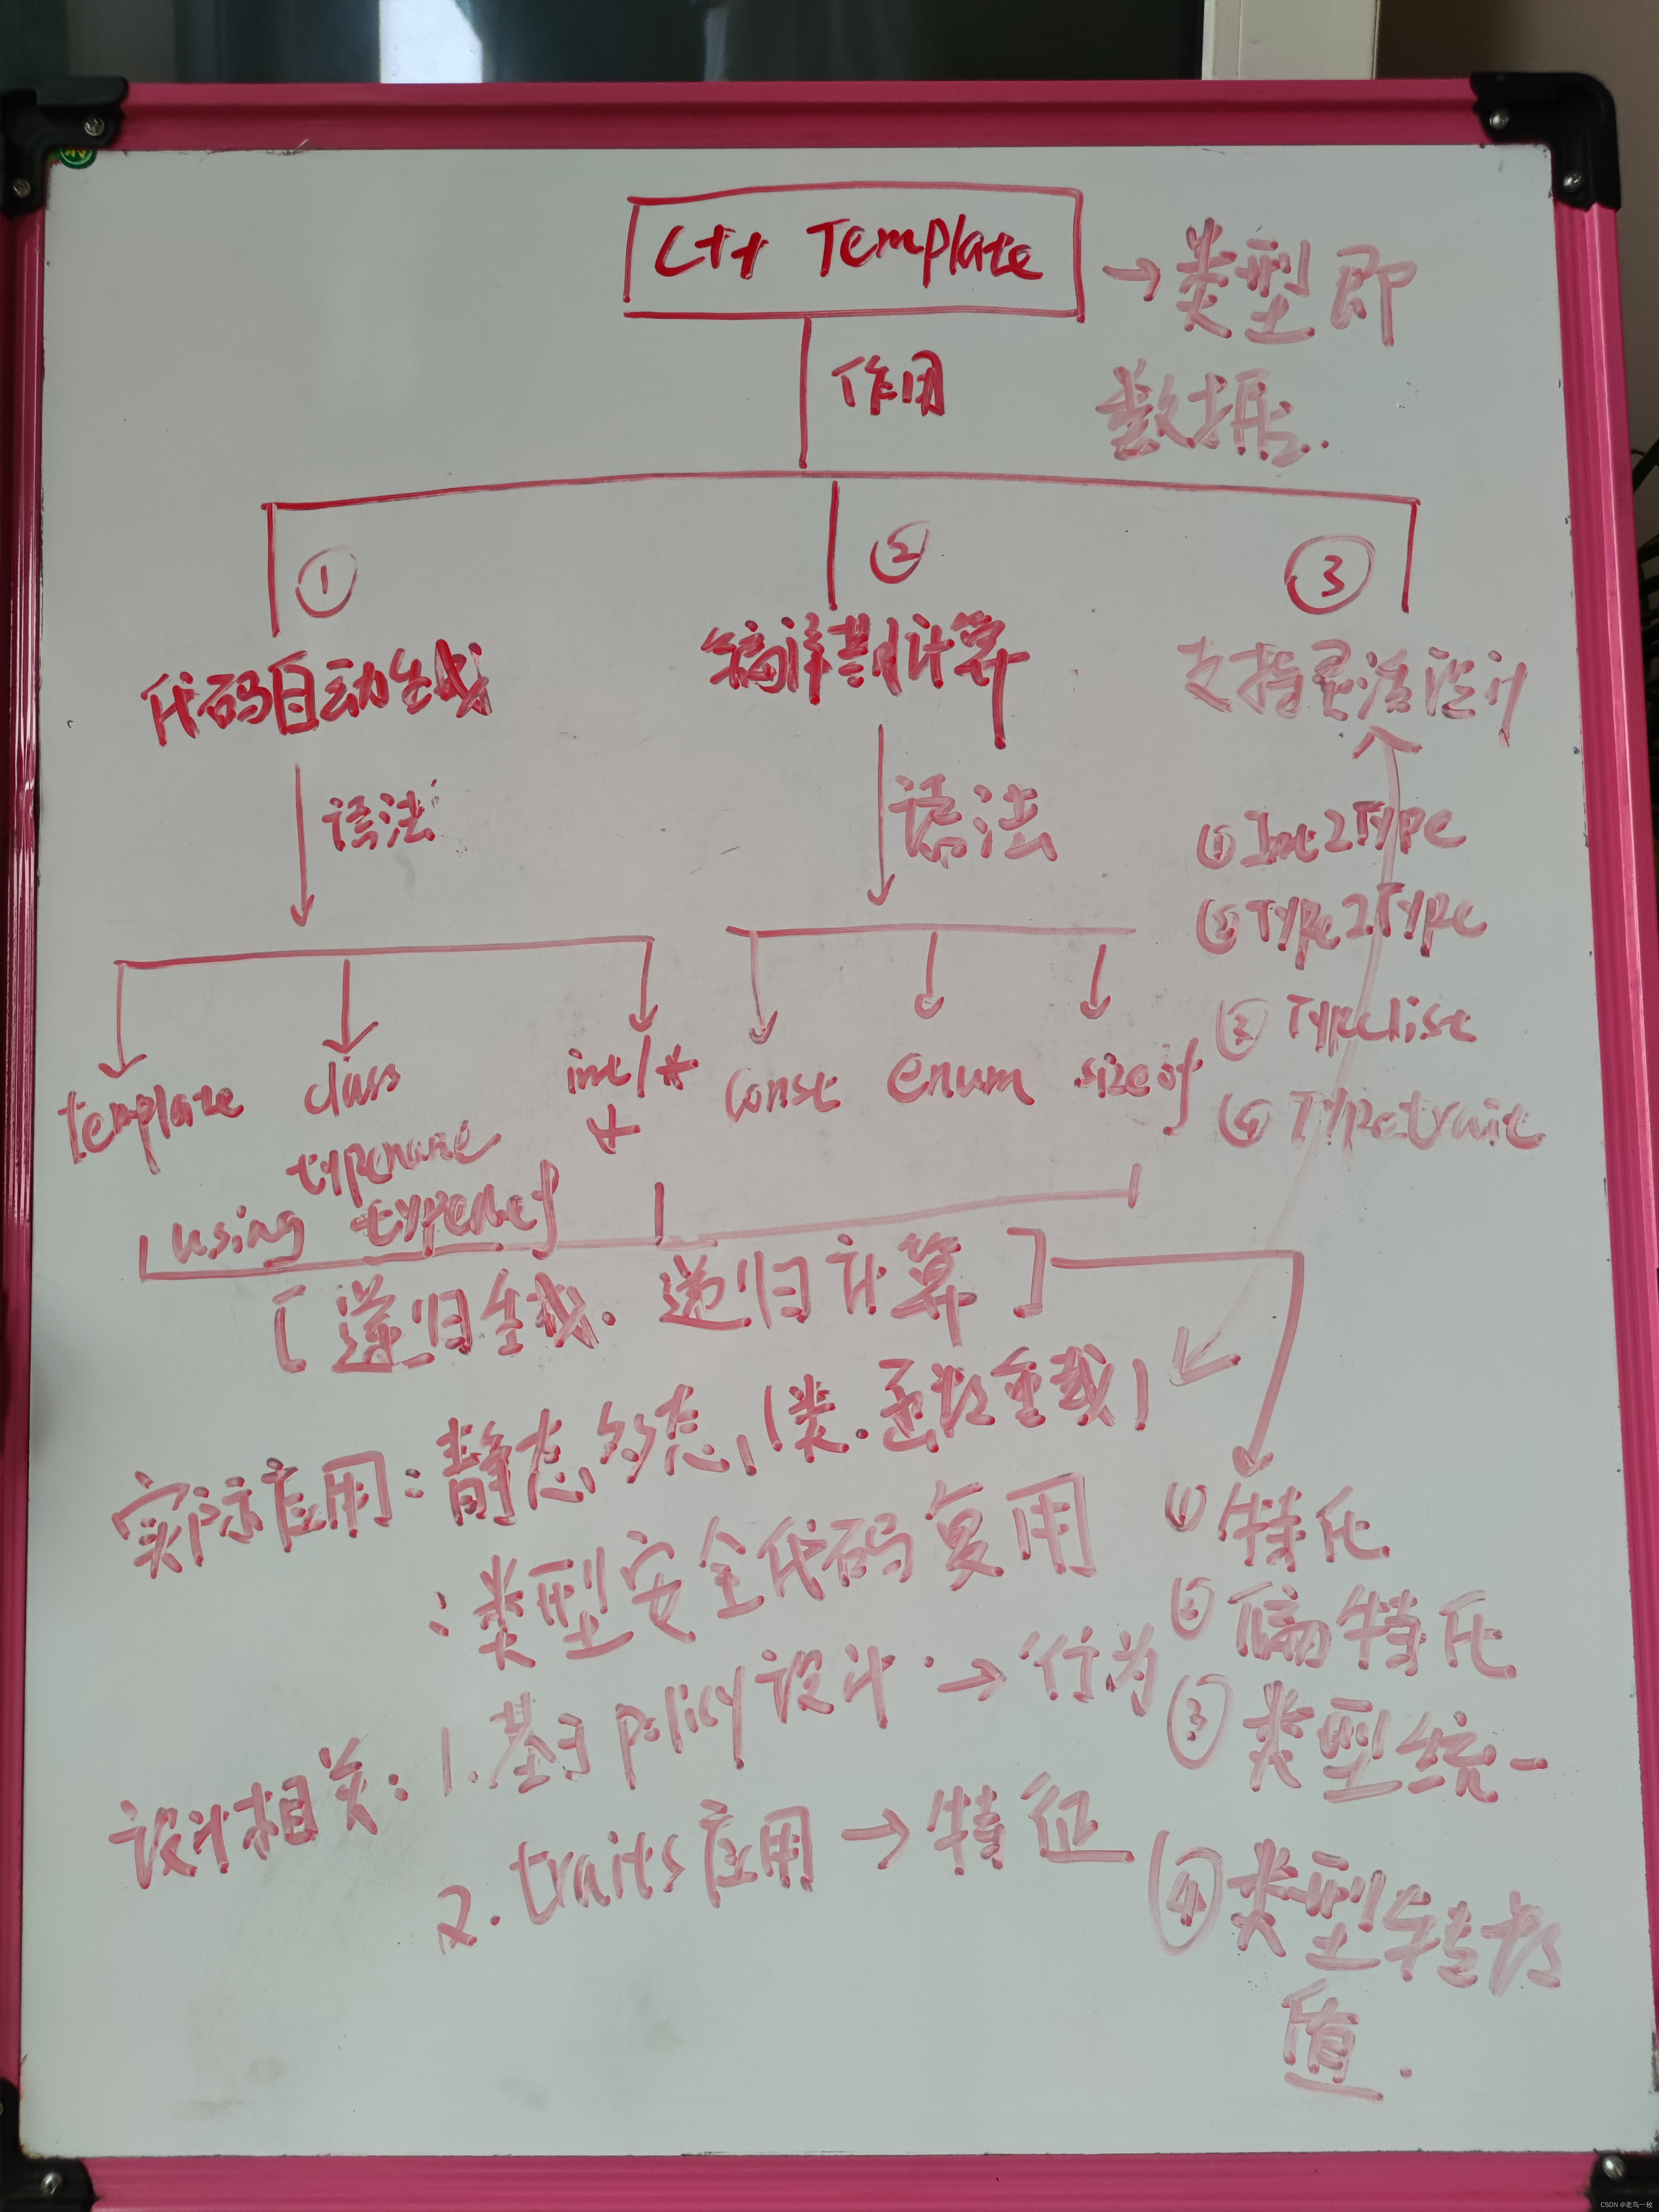 C++ Template
→ 类型即
数据.
作用
① ② ③
代码自动生成
编译期计算
支持灵活设计
语法
语法
① Int2Type
② Type2Type
③ Typelist
④ Typetrait
template
class
typename
using typedef
int/*
const
enum
sizeof
[递归生成. 递归计算]
实际应用:静态多态,(类.函数重载)
:类型安全代码复用
设计相关:1.基于policy设计.→行为
2.traits应用→特征
①特化
②偏特化
③类型统一
④类型转换
值.
CSDN @老鸟一枚